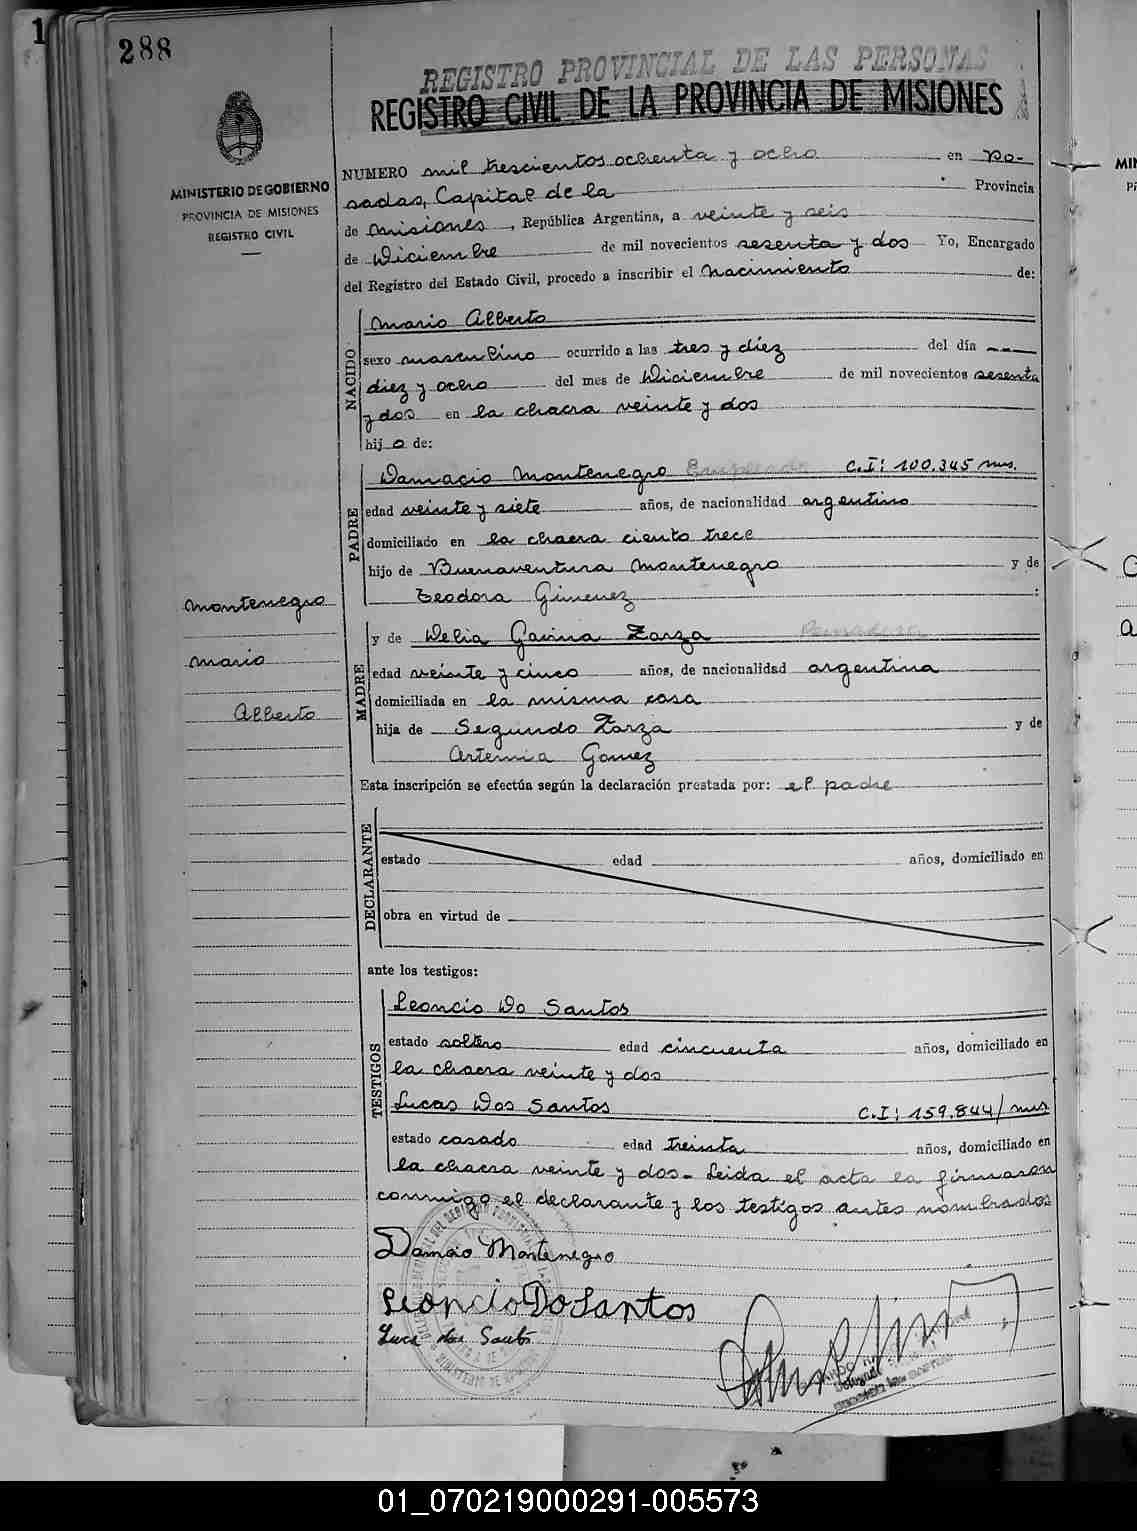 288
REGISTRO PROVINCIAL DE LAS PERSONAS
REGISTRO CIVIL DE LA PROVINCIA DE MISIONES
MINISTERIO DE GOBIERNO
PROVINCIA DE MISIONES
REGISTRO CIVIL
NUMERO mil trescientos ochenta y ocho en Po-
sadas, Capital de la Provincia
de Misiones, República Argentina, a veinte y seis
de Diciembre de mil novecientos sesenta y dos Yo, Encargado
del Registro del Estado Civil, procedo a inscribir el nacimiento de:
NACIDO
Mario Alberto
sexo masculino ocurrido a las tres y diez del día
diez y ocho del mes de Diciembre de mil novecientos sesenta
y dos en la chacra veinte y dos
hijo de:
PADRE
Damacio Montenegro Empleado C.I: 100.345 mns.
edad veinte y siete años, de nacionalidad argentino
domiciliado en la chacra ciento trece
hijo de Buenaventura Montenegro y de
Teodora Gimenez :
Montenegro
Mario
Alberto
MADRE
y de Delia Gavina Zarza
edad veinte y cinco años, de nacionalidad argentina
domiciliada en la misma casa
hija de Segundo Zarza y de
Artemia Gomez
Esta inscripción se efectúa según la declaración prestada por: el padre
DECLARANTE
estado edad años, domiciliado en
obra en virtud de
ante los testigos:
TESTIGOS
Leoncio Do Santos
estado soltero edad cincuenta años, domiciliado en
la chacra veinte y dos
Lucas Dos Santos C.I: 159.844/mns
estado casado edad treinta años, domiciliado en
la chacra veinte y dos - Leida el acta la firmaron
conmigo el declarante y los testigos antes nombrados
Damacio Montenegro
Leoncio Do Santos
Luca dos Santo
01_070219000291-005573